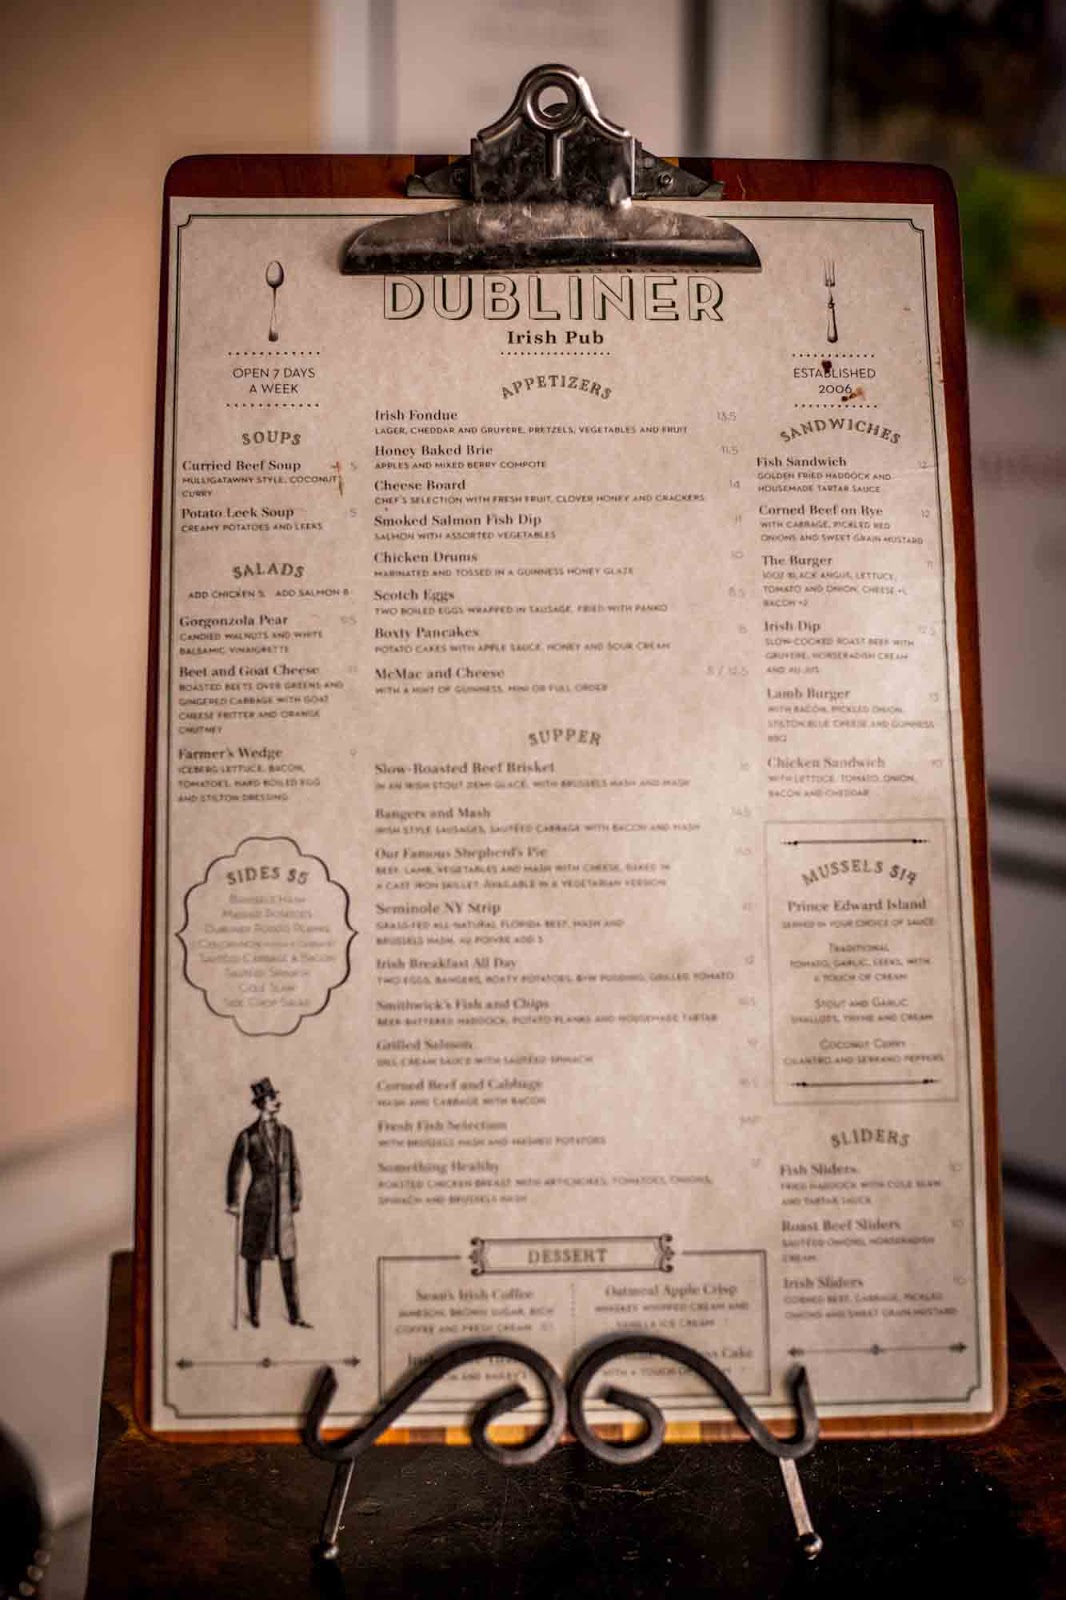 DUBLINER
Irish Pub
OPEN 7 DAYS
A WEEK
ESTABLISHED
2006
SOUPS
Curried Beef Soup 5
MULLIGATAWNY STYLE, COCONUT
CURRY
Potato Leek Soup 5
CREAMY POTATOES AND LEEKS
SALADS
ADD CHICKEN 5 ADD SALMON 8
Gorgonzola Pear 9.5
CANDIED WALNUTS AND WHITE
BALSAMIC VINAIGRETTE
Beet and Goat Cheese
ROASTED BEETS OVER GREENS AND
GINGERED CABBAGE WITH GOAT
CHEESE FRITTER AND ORANGE
CHUTNEY
Farmer's Wedge 9
ICEBERG LETTUCE, BACON,
TOMATOES, HARD BOILED EGG
AND STILTON DRESSING
SIDES $5
BRUSSELS HASH
MASHED POTATOES
DUBLINER POTATO PLANKS
COLCANNON
SAUTÉED CABBAGE & BACON
SAUTÉED SPINACH
COLE SLAW
SIDE CHOP SALAD
APPETIZERS
Irish Fondue 13.5
LAGER, CHEDDAR AND GRUYERE, PRETZELS, VEGETABLES AND FRUIT
Honey Baked Brie 11.5
APPLES AND MIXED BERRY COMPOTE
Cheese Board 14
CHEF'S SELECTION WITH FRESH FRUIT, CLOVER HONEY AND CRACKERS
Smoked Salmon Fish Dip 11
SALMON WITH ASSORTED VEGETABLES
Chicken Drums 10
MARINATED AND TOSSED IN A GUINNESS HONEY GLAZE
Scotch Eggs 8.5
TWO BOILED EGGS WRAPPED IN SAUSAGE, FRIED WITH PANKO
Boxty Pancakes
POTATO CAKES WITH APPLE SAUCE, HONEY AND SOUR CREAM
McMac and Cheese 8 / 12.5
WITH A HINT OF GUINNESS, MINI OR FULL ORDER
SUPPER
Slow-Roasted Beef Brisket
IN AN IRISH STOUT DEMI GLACE, WITH BRUSSELS HASH AND MASH
Bangers and Mash 14.5
IRISH STYLE SAUSAGES, SAUTÉED CABBAGE WITH BACON AND MASH
Our Famous Shepherd's Pie
BEEF, LAMB, VEGETABLES AND MASH WITH CHEESE, BAKED IN
A CAST IRON SKILLET. AVAILABLE IN A VEGETARIAN VERSION
Seminole NY Strip
GRASS-FED ALL-NATURAL FLORIDA BEEF, MASH AND
BRUSSELS HASH, AU POIVRE ADD 3
Irish Breakfast All Day 12
TWO EGGS, BANGERS, BOXTY POTATOES, B/W PUDDING, GRILLED TOMATO
Smithwick's Fish and Chips
BEER-BATTERED HADDOCK, POTATO PLANKS AND HOUSEMADE TARTAR
Grilled Salmon
DILL CREAM SAUCE WITH SAUTÉED SPINACH
Corned Beef and Cabbage
MASH AND CABBAGE WITH BACON
Fresh Fish Selection
WITH BRUSSELS HASH AND MASHED POTATOES
Something Healthy
ROASTED CHICKEN BREAST WITH ARTICHOKES, TOMATOES, ONIONS,
SPINACH AND BRUSSELS HASH
DESSERT
Sean's Irish Coffee
JAMESON, BROWN SUGAR, RICH
COFFEE AND FRESH CREAM
Oatmeal Apple Crisp
WHISKEY WHIPPED CREAM AND
VANILLA ICE CREAM
Cake
WITH A TOUCH
SANDWICHES
Fish Sandwich 12
GOLDEN FRIED HADDOCK AND
HOUSEMADE TARTAR SAUCE
Corned Beef on Rye 12
WITH CABBAGE, PICKLED RED
ONIONS AND SWEET GRAIN MUSTARD
The Burger 11
10OZ BLACK ANGUS, LETTUCE,
TOMATO AND ONION, CHEESE +1,
BACON +2
Irish Dip 12.5
SLOW-COOKED ROAST BEEF WITH
GRUYERE, HORSERADISH CREAM
AND AU JUS
Lamb Burger 13
WITH BACON, PICKLED ONION,
STILTON BLUE CHEESE AND GUINNESS
BBQ
Chicken Sandwich 10
WITH LETTUCE, TOMATO, ONION,
BACON AND CHEDDAR
MUSSELS $14
Prince Edward Island
SERVED IN YOUR CHOICE OF SAUCE
TRADITIONAL
TOMATO, GARLIC, LEEKS, WITH
A TOUCH OF CREAM
STOUT AND GARLIC
SHALLOTS, THYME AND CREAM
COCONUT CURRY
CILANTRO AND SERRANO PEPPERS
SLIDERS
Fish Sliders 10
FRIED HADDOCK WITH COLE SLAW
AND TARTAR SAUCE
Roast Beef Sliders 10
SAUTÉED ONIONS, HORSERADISH
CREAM
Irish Sliders 10
CORNED BEEF, CABBAGE, PICKLED
ONIONS AND SWEET GRAIN MUSTARD